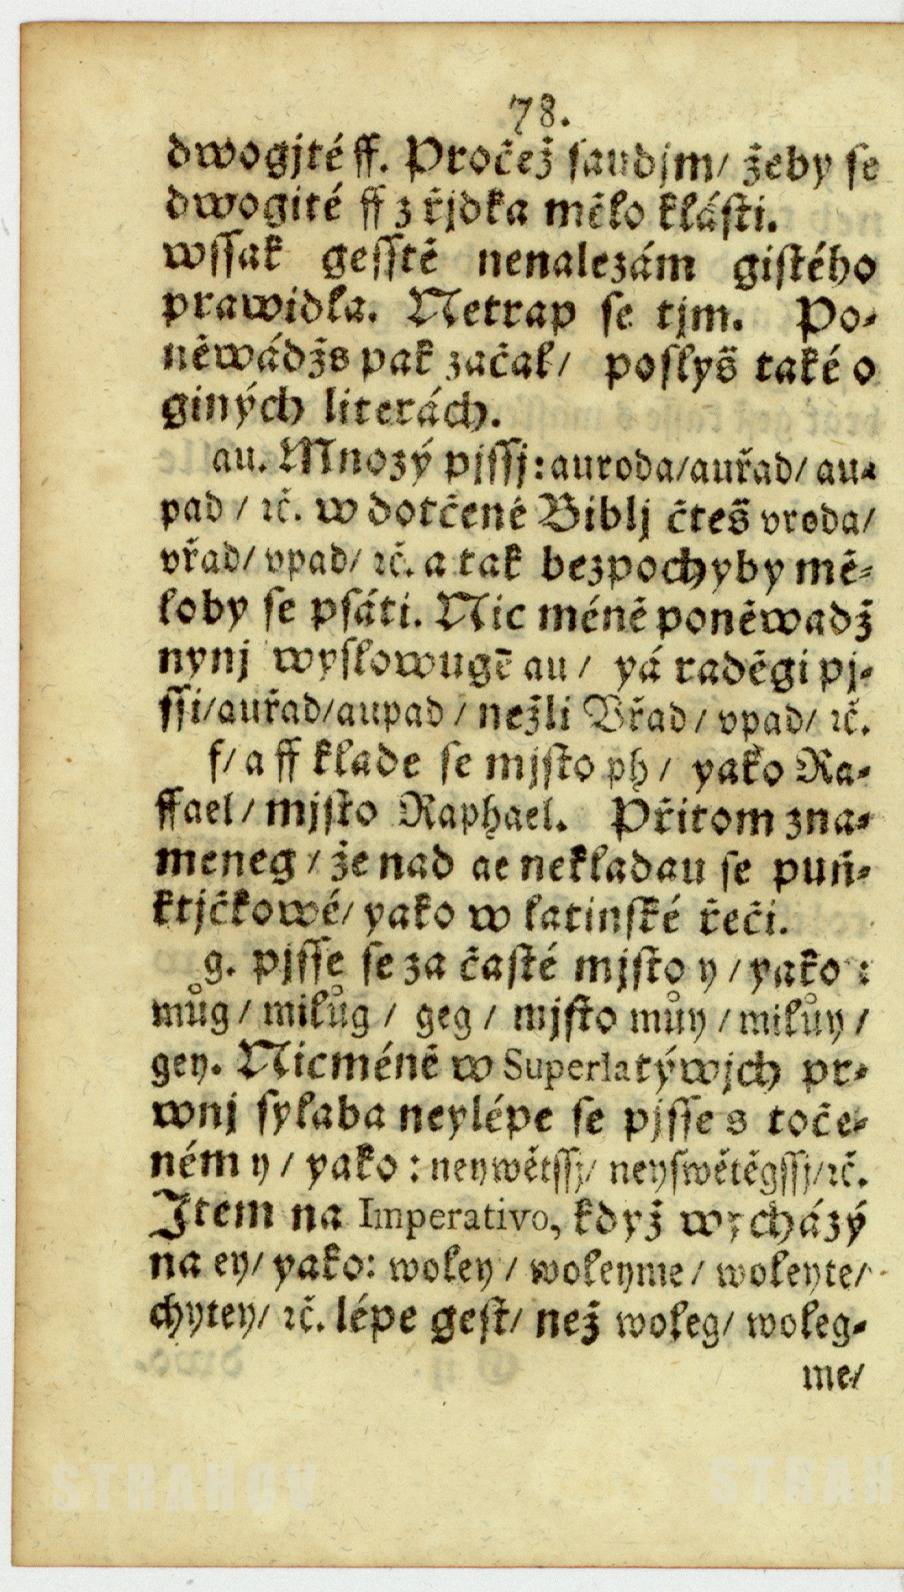 78.
dwogjté ff. Pročež saudjm/ žeby se
dwogité ff z řjdka mělo klásti.
wssak gesstě nenalezám gistého
prawidla. Netrap se tjm. Po-
něwádžs pak začal/ poslyš také o
giných literách.
au. Mnozý pjssj: auroda/auřad/ au-
pad / ꝛč. w dotčené Biblj čteš vroda/
vřad/ vpad/ ꝛč. a tak bezpochyby mě-
loby se psáti. Nic méně poněwadž
nynj wyslowugē au / yá raděgi pj-
ssi/auřad/aupad / nežli Vřad / vpad/ ꝛč.
f/ a ff klade se mjsto ph / yako Ra-
ffael / mjsto Raphael. Přitom zna-
meneg / že nad ae nekladau se puň-
ktjčkowé/ yako w latinské řeči.
g. pjsse se za časté mjsto y / yako :
můg / milůg / geg / mjsto můy / milůy /
gey. Nicméně w Superlatýwjch pr-
wnj sylaba neylépe se pjsse s toče-
ném y / yako : neywětssj/ neyswětěgssj/ꝛč.
Item na Imperativo, když wycházý
na ey/ yako: woley / woleyme / woleyte/
chytey/ ꝛč. lépe gest/ než woleg/ woleg-
me/
STRAHOV
STRAH